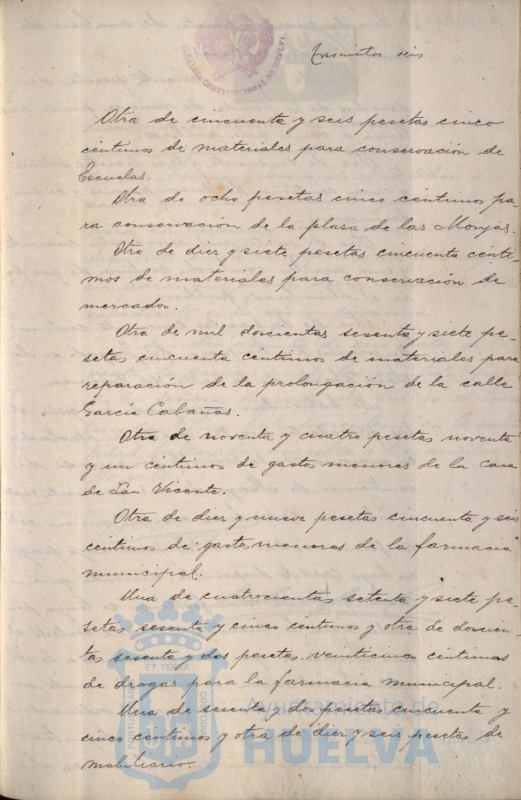 ALCALDIA CONSTITUCIONAL DE HUELVA
Trescientos seis
Otra de cincuenta y seis pesetas cinco
céntimos de materiales para conservación de
Escuelas.
Otra de ocho pesetas cinco céntimos pa-
ra conservación de la plasa de las Monjas.
Otro de diez y siete pesetas cincuenta cénti-
mos de materiales para conservación de
mercados.
Otra de mil doscientas sesenta y siete pe-
setas cincuenta céntimos de materiales para
reparación de la prolongación de la calle
García Cabañas.
Otra de noventa y cuatro pesetas noventa
y un céntimos de gastos menores de la casa
de San Vicente.
Otra de diez y nueve pesetas cincuenta y seis
céntimos de gastos menores de la farmacia
municipal.
Una de cuatrocientas setenta y siete pe-
setas sesenta y cinco céntimos y otra de doscien-
tas sesenta y dos pesetas veinticinco céntimos
de drogas para la farmacia municipal.
Una de sesenta y dos pesetas cincuenta y
cinco céntimos y otra de diez y seis pesetas de
mobiliario.
Ayuntamiento de
HUELVA